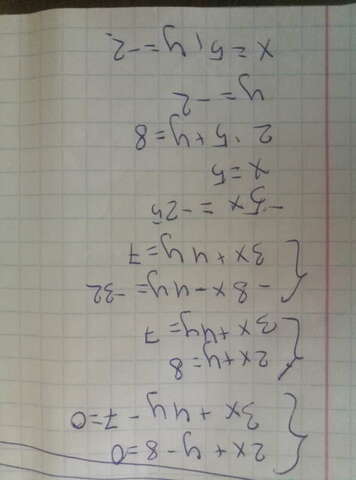 2x + y - 8 = 0
3x + 4y - 7 = 0
2x + y = 8
3x + 4y = 7
- 8x - 4y = -32
3x + 4y = 7
-5x = -25
x = 5
2 · 5 + y = 8
y = -2
x = 5, y = -2